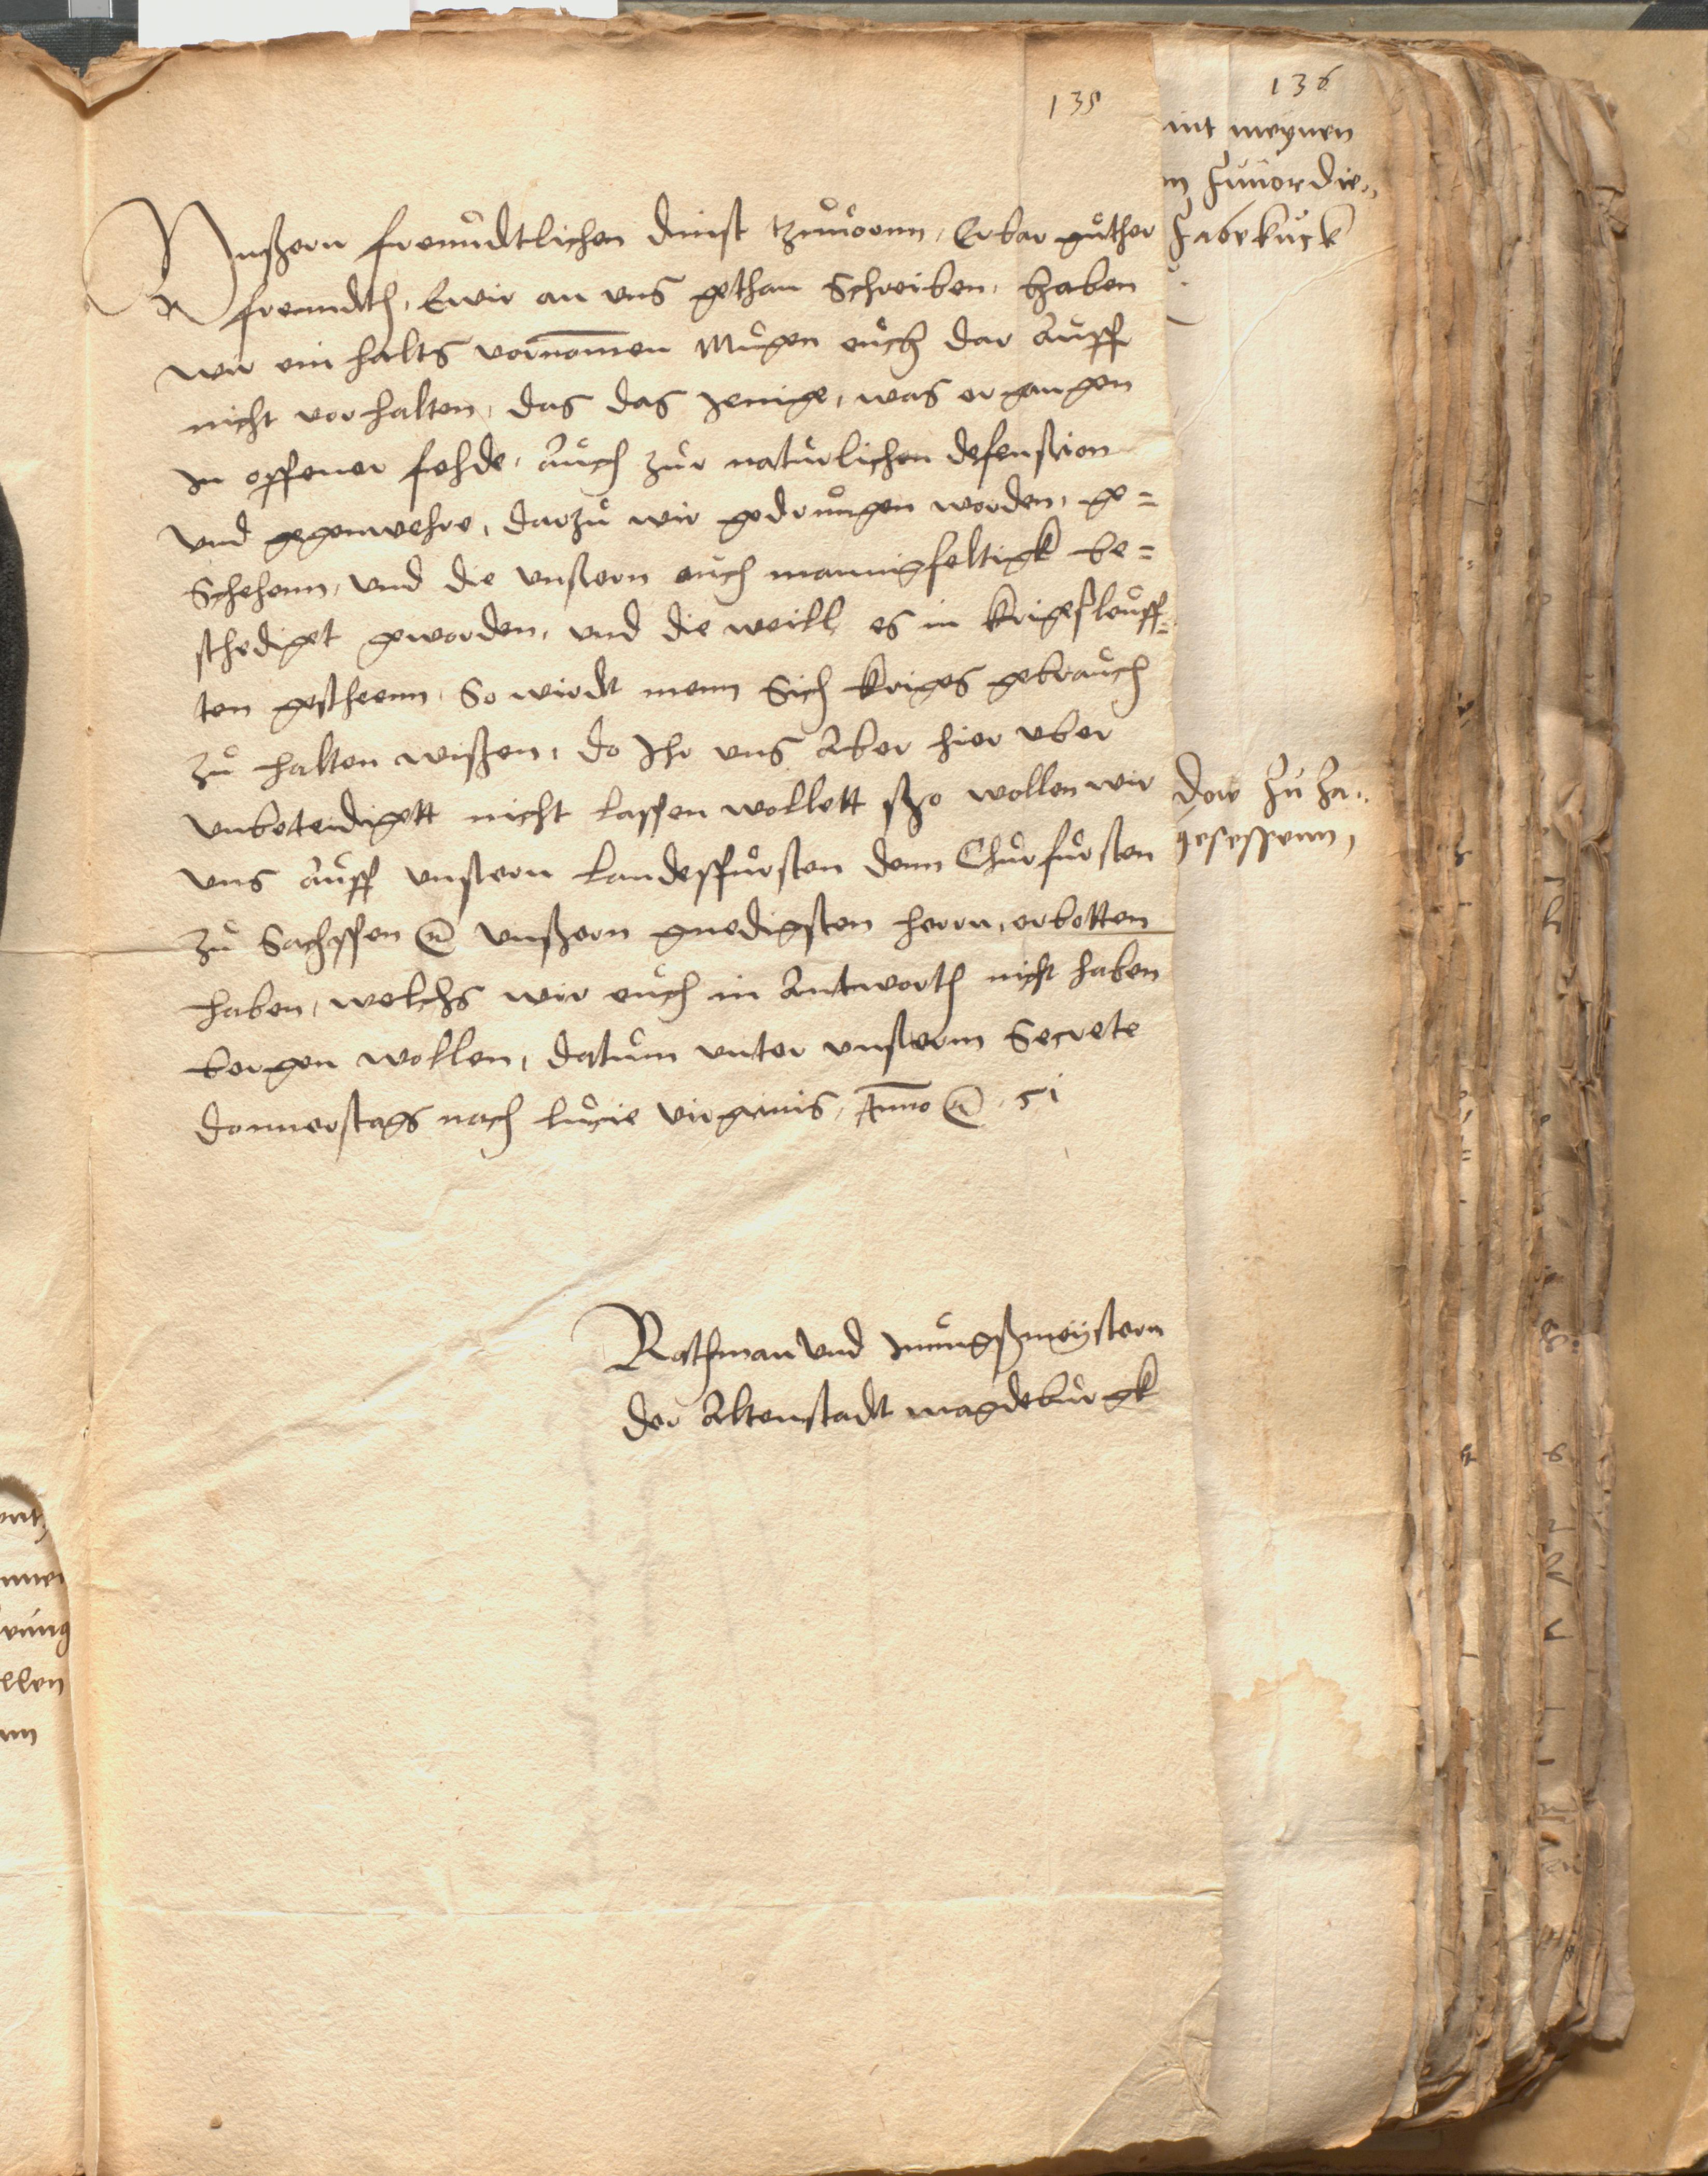 135
Vnßern freundtlichen dinst tzuuornn, Erbar guther
freundth, Ewir an vns gethan Schreiben, haben
wir ein halts vornommen Mugen euch dar auff
nicht vorhalten, das das Jenige, was ergangen
In offener fehde, auch zur naturlichen defenstion
Vnd gegenwehre, darzu wir gedrungen worden, ge=
Schehenn, Vnd die Vnßern auch mannigfeltigk be=
schediget geworden, vnd die weill es in krigeßleuff=
ten gescheenn, So wirdt menn Sich kriges gebrauch
zu halten wißen, do Ihr vns Aber hier vber
Vnbeteidigett nicht lassen wollett ßo wollen wir
vns auff vnßern landeßfursten denn Churfursten
zu Sachssen @ Vnßern gnedigsten herrn, erbotten
haben, welchs wir euch in Antworth nicht haben
bergen wollen, datum vnter vnßerm Secrete
donnerstags nach lucie virginis, Anno @ 51
Rathman Vnd Innungßmeystern
der Altenstadt magdeburgk
136
mit meynen
zuuor die,,
Haberkuck
dow zu Za,,
gesessenn,
rung
llen